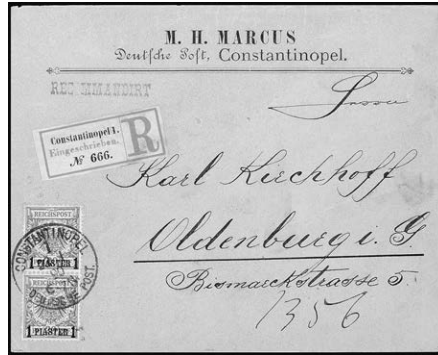 M. H. MARCUS
Deutsche Post, Constantinopel.
RECOMMANDIRT
Constantinopel 1.
Eingeschrieben.
№ 666.
R
Karl Kirchhoff
Oldenburg i. G.
Bismarckstrasse 5.
1356
REICHSPOST
1 PIASTER 1
CONSTANTINOPEL
1
DEUTSCHE POST.
REICHSPOST
1 PIASTER 1